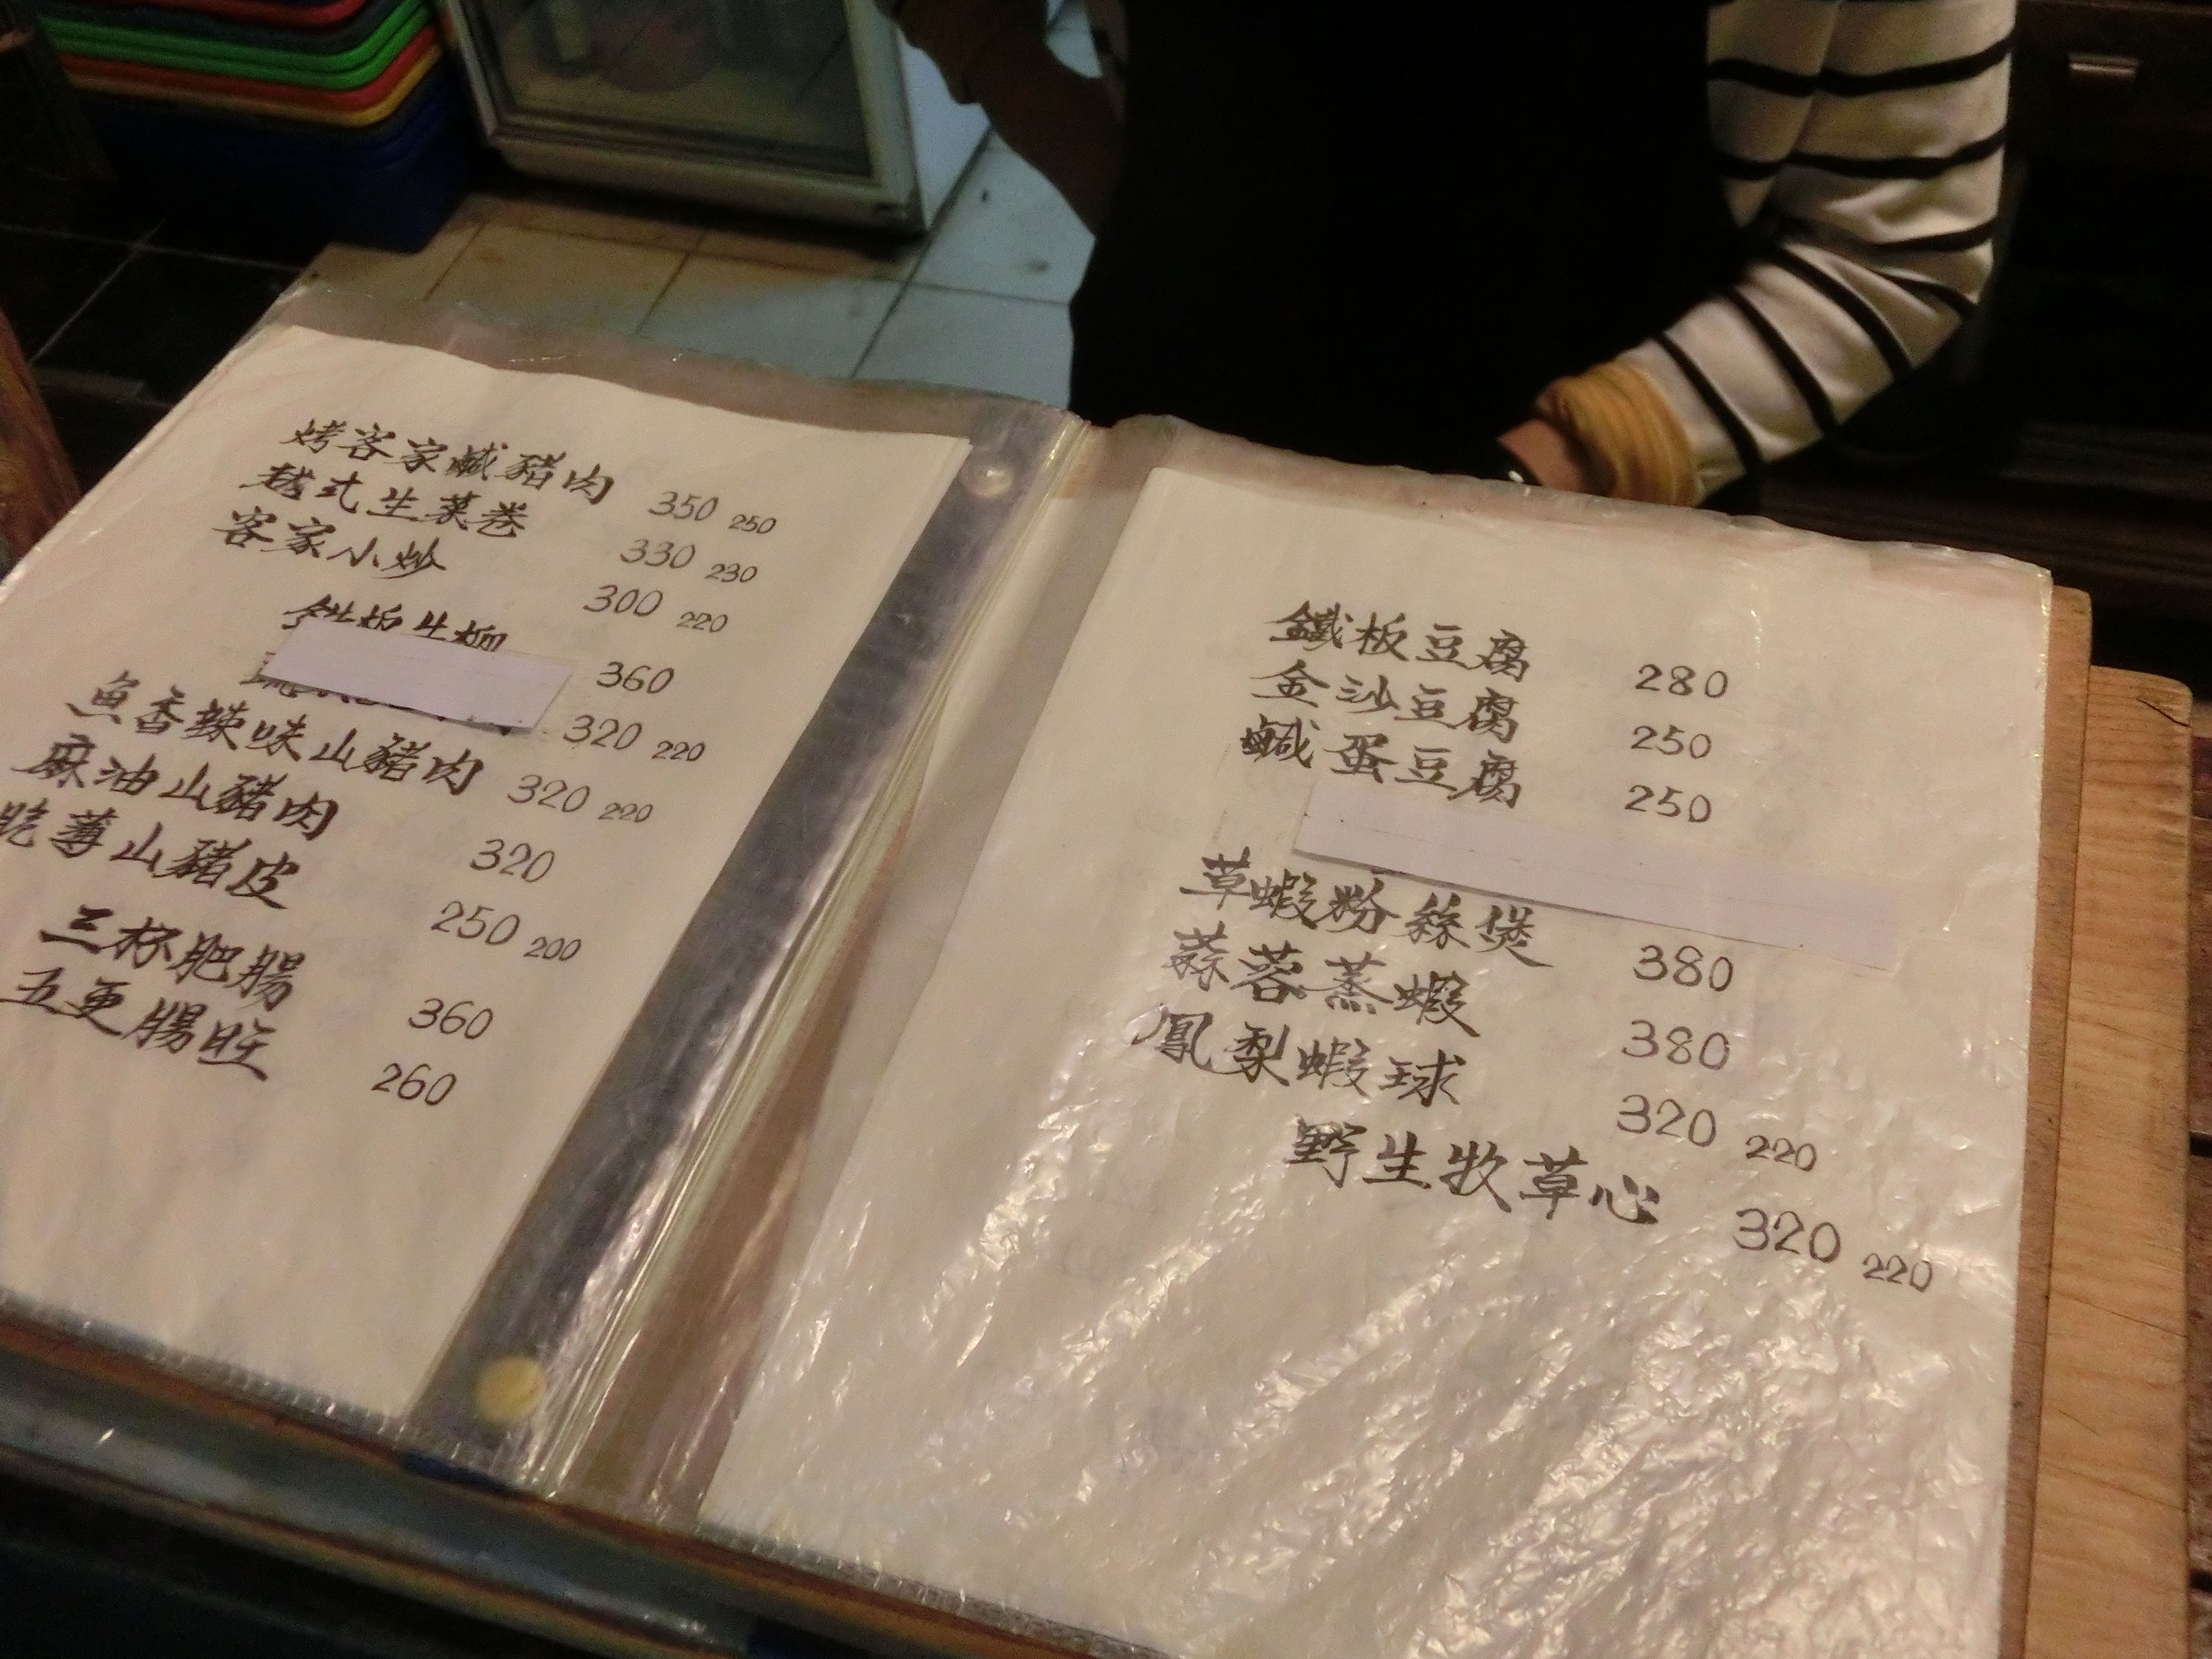 烤客家鹹豬肉 350 250
越式生菜卷 330 230
客家小炒 300 220
鐵板牛柳 360
320 220
魚香辣味山豬肉 320 220
麻油山豬肉 320
脆薄山豬皮 250 200
三杯肥腸 360
五更腸旺 260
鐵板豆腐 280
金沙豆腐 250
鹹蛋豆腐 250
草蝦粉絲煲 380
蒜蓉蒸蝦 380
鳳梨蝦球 320 220
野生牧草心 320 220